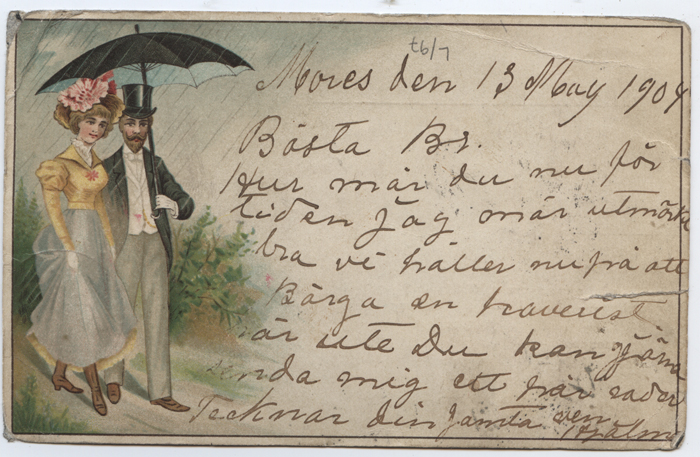 Mores den 13 May 1904
Bästa Br.
Hur mår du nu för
tiden jag mår utmärkt
bra vi håller nu på att
Bärga en
är ute Du kan gjärna
senda mig ett par rader
Tecknar din jamta vän
Hjalm